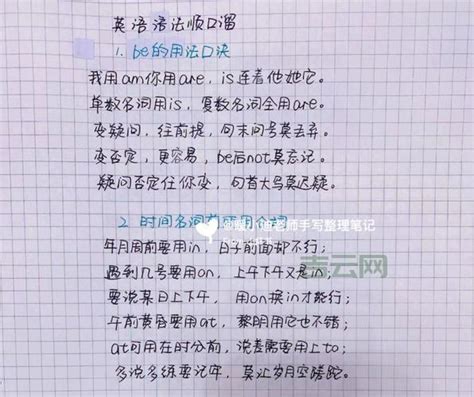 英语语法顺口溜
1. be的用法口诀
我用am你用are, is连着他她它。
单数名词用is, 复数名词全用are。
变疑问, 往前提, 句末问号莫丢弃。
变否定, 更容易, be后not莫忘记。
疑问否定任你变, 句首大写莫迟疑。
2. 时间名词前
老师手写整理笔记
年月周前要用in, 日子前面却不行;
遇到几号要用on, 上午下午又是in;
要说某日上下午, 用on换in才能行;
午前黄昏要用at, 黎明用它也不错;
at可用在时分前, 说差需要用上to;
多说多练要记牢, 莫让岁月空蹉跎。
志云网